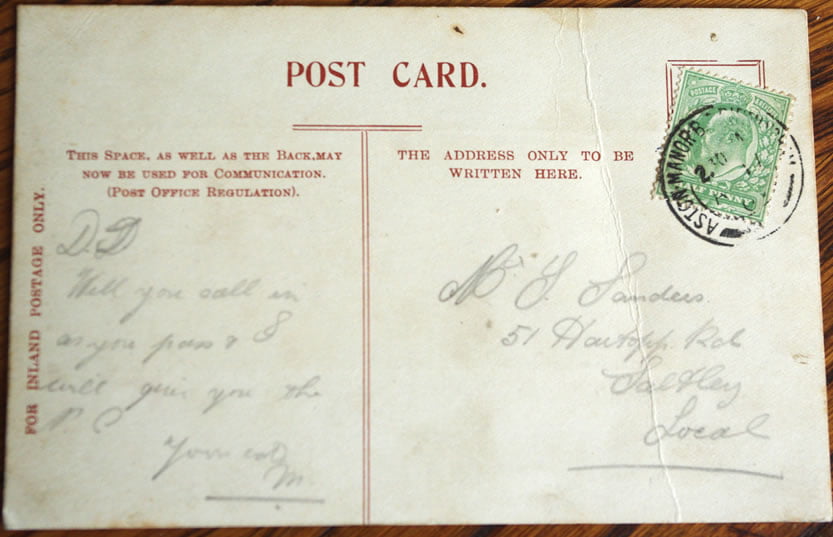 POST CARD.
THIS SPACE, AS WELL AS THE BACK, MAY
NOW BE USED FOR COMMUNICATION.
(POST OFFICE REGULATION).
THE ADDRESS ONLY TO BE
WRITTEN HERE.
FOR INLAND POSTAGE ONLY.
POSTAGE
HALF PENNY
ASTON-MANOR B
D. D
Will you call in
as you pass & I
will give you the
P C
Yours
M.
Mr S. Sanders.
51 Hartopp Rd
Saltley
Local